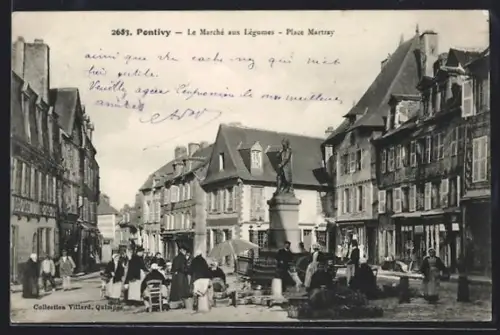 2683. Pontivy - Le Marché aux Légumes - Place Martray
ainsi que du cachet qui m'est
très utile.
Veuillez agréer l'expression de mes meilleures
amitiés
Collection Villard, Quimper